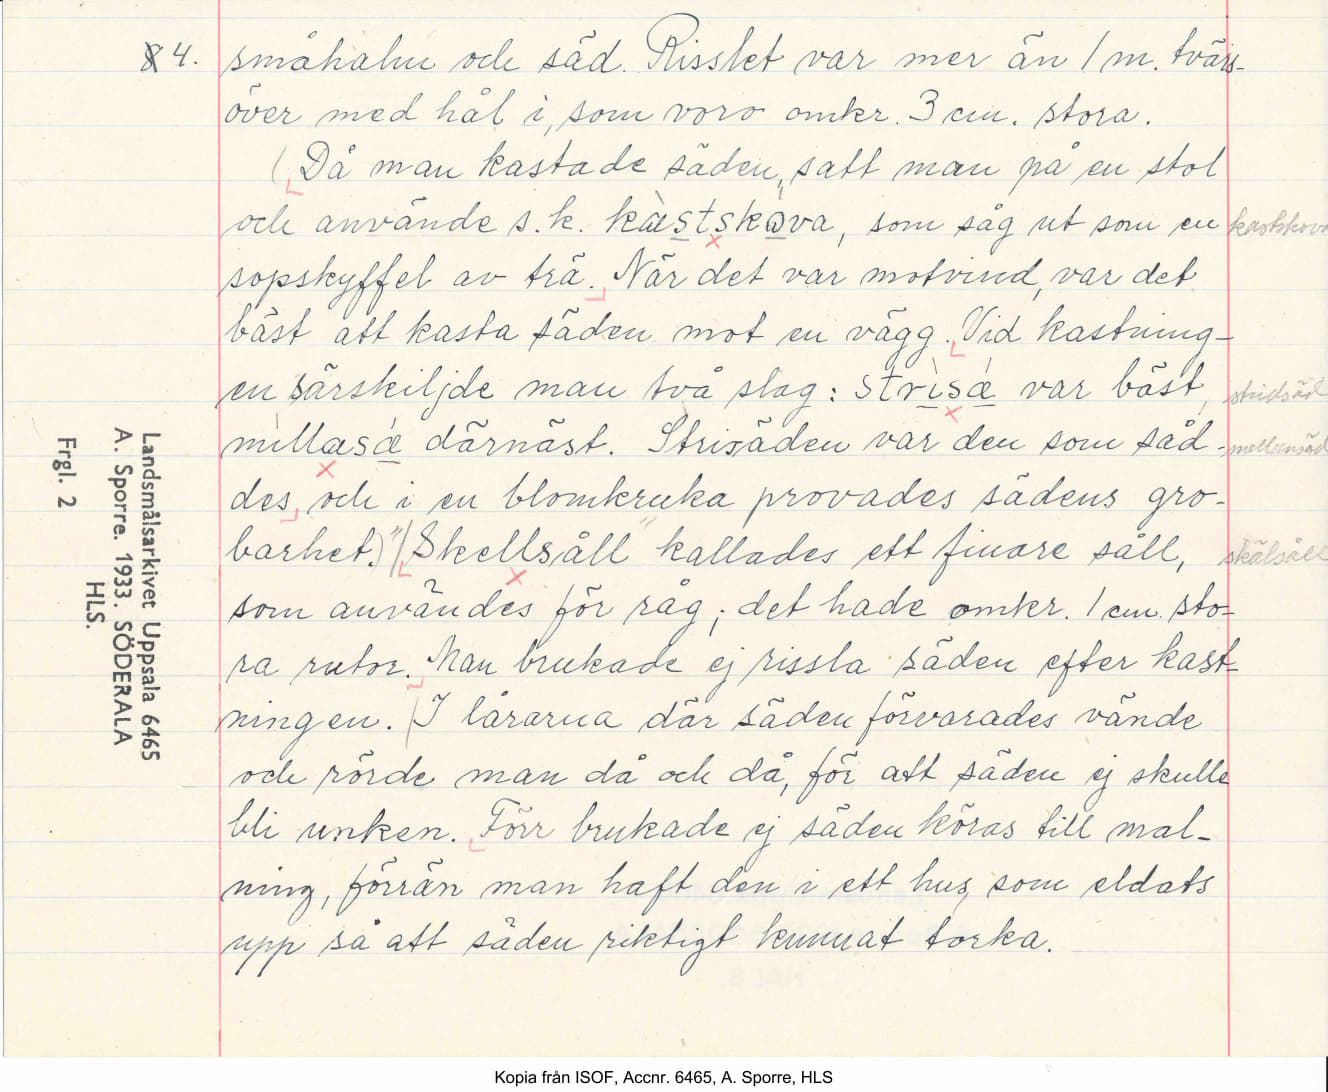 4. småhalm och säd. Risslet var mer än 1 m. tvärs-
över med hål i, som voro omkr. 3 cm. stora.
(Då man kastade säden, satt man på en stol
och använde s.k. kàstskòva, som såg ut som en kastskova
sopskyffel av trä. När det var motvind, var det
bäst att kasta säden mot en vägg. Vid kastning-
en särskiljde man två slag: strìsæ var bäst, stridsäd
mìllasæ därnäst. Strisäden var den som såd- mellansäd
des, och i en blomkruka provades sädens gro-
barhet.) "Skellsåll" kallades ett finare såll, skälsåll
som användes för råg; det hade omkr. 1 cm. sto-
ra rutor. Man brukade ej rissla säden efter kast-
ningen. I lårarna där säden förvarades vände
och rörde man då och då, för att säden ej skulle
bli unken. Förr brukade ej säden köras till mal-
ning, förrän man haft den i ett hus, som eldats
upp så att säden riktigt kunnat torka.
Landsmålsarkivet Uppsala 6465
A. Sporre. 1933. SÖDERALA
HLS.
Frgl. 2
Kopia från ISOF, Accnr. 6465, A. Sporre, HLS